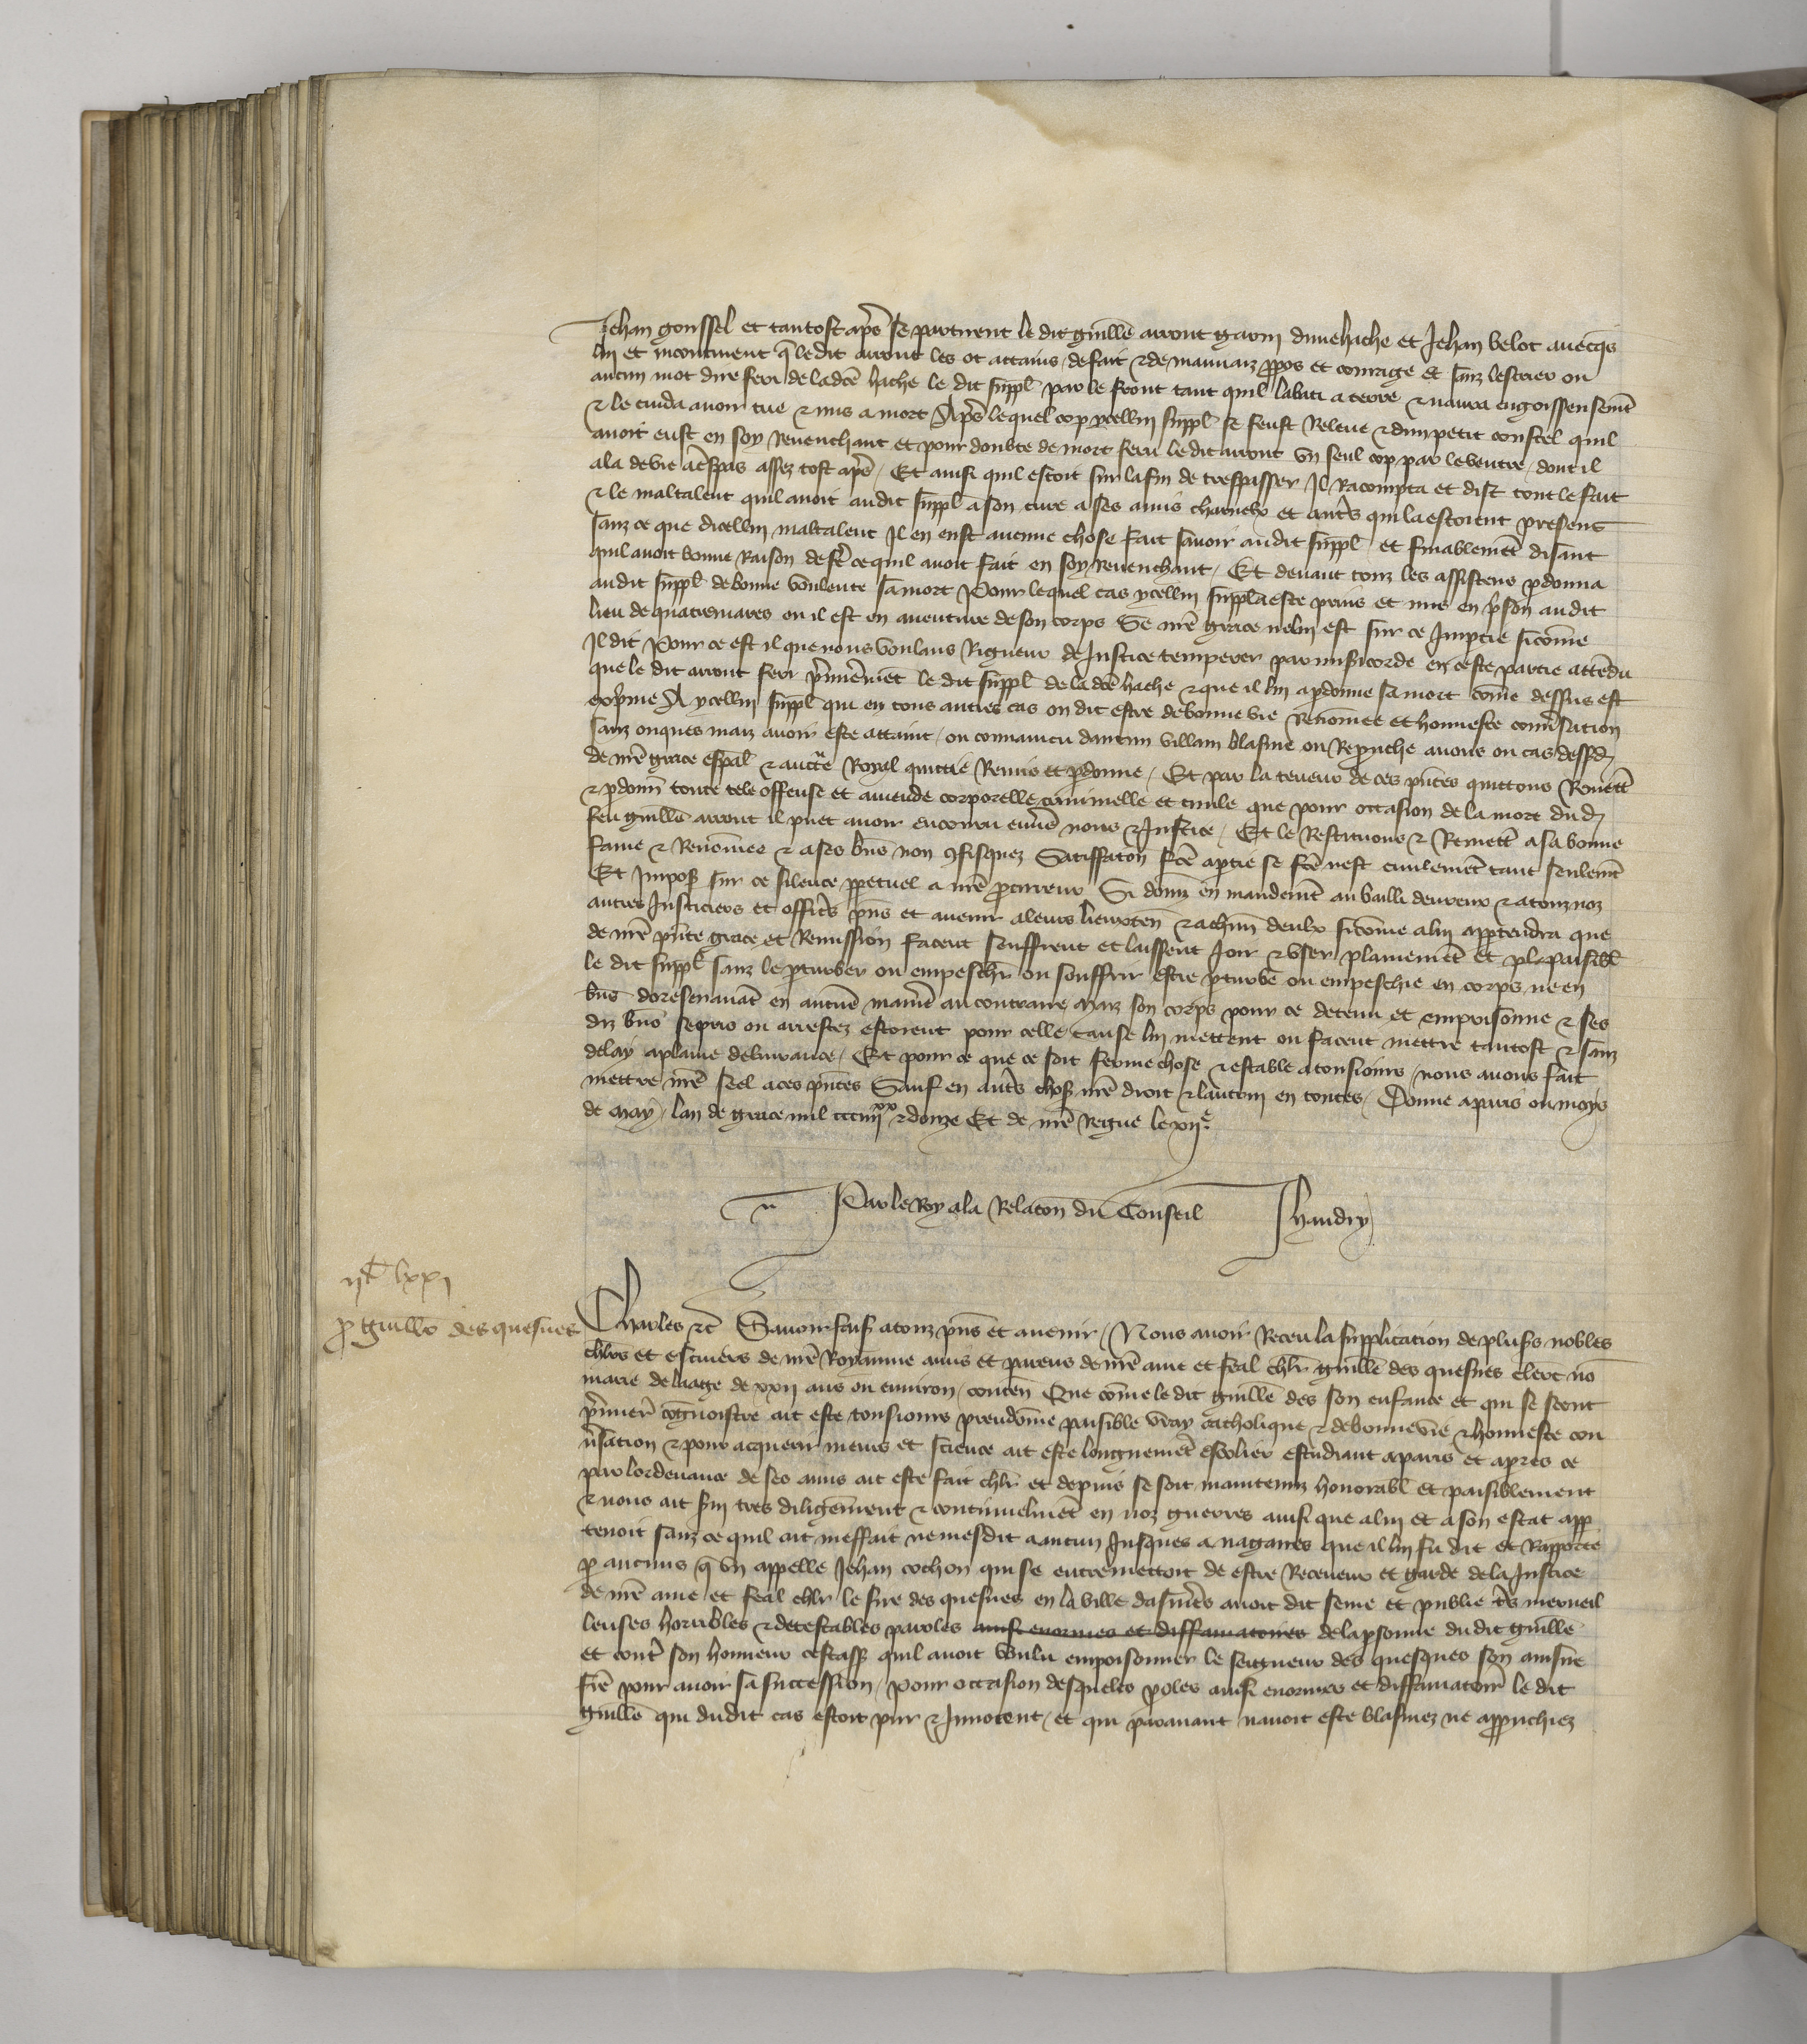 Jehan goussel et tantost apres se partirent le dit guille arrout garni dunehache et Jehan belot avecqs
lui et incontinent q ledit arrout les ot attains de fait & de mauvaiz ppos et courage et sanz lescrier ou
aucun mot dire feri de ladce hache le dit suppl par le front tant quil labati a terre & navra engoisseusemt
& le cuida avoir tue & mis a mort Apres lequel cop ycellui suppl se feust Releve & dun petit coustel quil
avoit eust en soy Revenchant et pour doubte de mort feru le dit arrout un seul cop par le ventre dont il
ala de vie a trespas assez tost apres Et ainsi quil estoit sur la fin de trespasser Il Racompta et dist tout le fait
& le maltalent quil avoit audit suppl a son cure a ses amis charnelx et autres qui la estoient present
sanz ce que dicellui maltalent Il en eust aucune chose fait savoir audit suppl et finablement disant
quil avoit bonne Raison de fere ce quil avoit fait en soy Revenchant Et devant touz les assistens pdonna
audit suppl de bonne voulente sa mort Pour lequel cas ycellui suppl a este prins et mis en prison audit
lieu de quatremares ou il est en aventure de son corps Se nre grace ne lui est sur ce Imptie sicomme
Il dit Pour ce est il que nous voulans Rigueur de Justice temperer par misericorde en ceste partie attendu
que le dit arrout feri premierement le dit suppl de la dce hache & que il lui a pdonne sa mort come dessus est
exprime A ycellui suppl qui en tous autres cas on dit estre de bonne vie Renommee et honneste conversation
sanz onques maiz avoir este attaint ou convaincu daucun villain blasme ou Reprouche avons ou cas dessusd
de nre grace espal & aucte Royal quictie Remis et pdonne Et par la teneur de ces pntes quittons Remett
& pdonn toute tele offense et amende corporelle criminelle et civile que pour occasion de la mort dud
feu guille arrout il puet avoir encouru envers nous & Justice Et le Restituons & Remett a sa bonne
fame & Renommee & a ses biens non 9fisquez Satiffaton fce a ptie se fce nest civilement tant seulemt
Et Impos sur ce silence ppetuel a nre procureur Si donn en mandemt au bailli devreux & a touz noz
autres Justiciers et offics pns et avenir a leurs lieuxten & a chun deulx sicomme a lui apptendra que
de nre pnte grace et Remission facent seuffrent et laissent Joir & user plainement et & paisibl
le dit suppl sanz le pturber ou empeschr ou souffrir estre pturbe ou empeschie en corps ne en
biens doresenavat en aucune maniere au contraire maiz son corps pour ce detenu et emprisonne & ses
diz biens se pris ou arrestez estoient pour celle cause lui mettent ou facent mettre tantost & sanz
delay a plaine delivrance Et pour ce que ce soit ferme chose & estable a tousiours nous avons fait
mettre nre seel a ces pntes Sauf en autres choses nre droit & lautrui en toutes Donne a paris ou moys
de May lan de grace mil ccciiiixx & douze Et de nre Regne le xiie
Par le Roy a la Relacon du Conseil handry
iic lxxi
p guille des quesnes
Charles &c Savoir fais a touz pns et avenir Nous avoir Receu la supplication de plusrs nobles
chlrs et escuiers de nre Royaume amis et parens de nre ame et feal chlr guille des quesnes clerc no
marie de laage de xxii ans ou environ conten Que come le dit guille des son enfance et qui se scent
premier cognoistre ait este tousiours preudomme paisible vray catholique & de bonne vie & honneste con
versation & pour acquerir meurs et science ait este longuement escolier estudiant a paris et apres ce
par lordenance de ses amis ait este fait chlr et depuis se soit maintenuz honorabl et paisiblement
& nous ait svi tres diligemment & continuelment en noz guerres ainsi que a lui et a son estat app
tenoit sanz ce quil ait meffait ne mesdit a aucun Jusques a nagaires que il lui fu dit et Rapporte
p aucuns q un appelle Jehan cochon qui se entremettoit de estre Receveur et garde de la Justice
de nre ame et feal chlr le sire des quesnes en la ville dasnieres avoit dit seme et publie tres merveil
leuses horribles & detestables paroles ainsi enormes et diffamatoires de la psonne du dit guille
et contre son honneur cestass quil avoit voulu empoisonner le seigneur des quesques son ainsne
frere pour avoir sa succession Pour occasion desqueles poles ainsi enormes et diffamatoirs le dit
guille qui dudit cas estoit pur & Innocent et qui paravant navoit este blasmez ne appruchiez